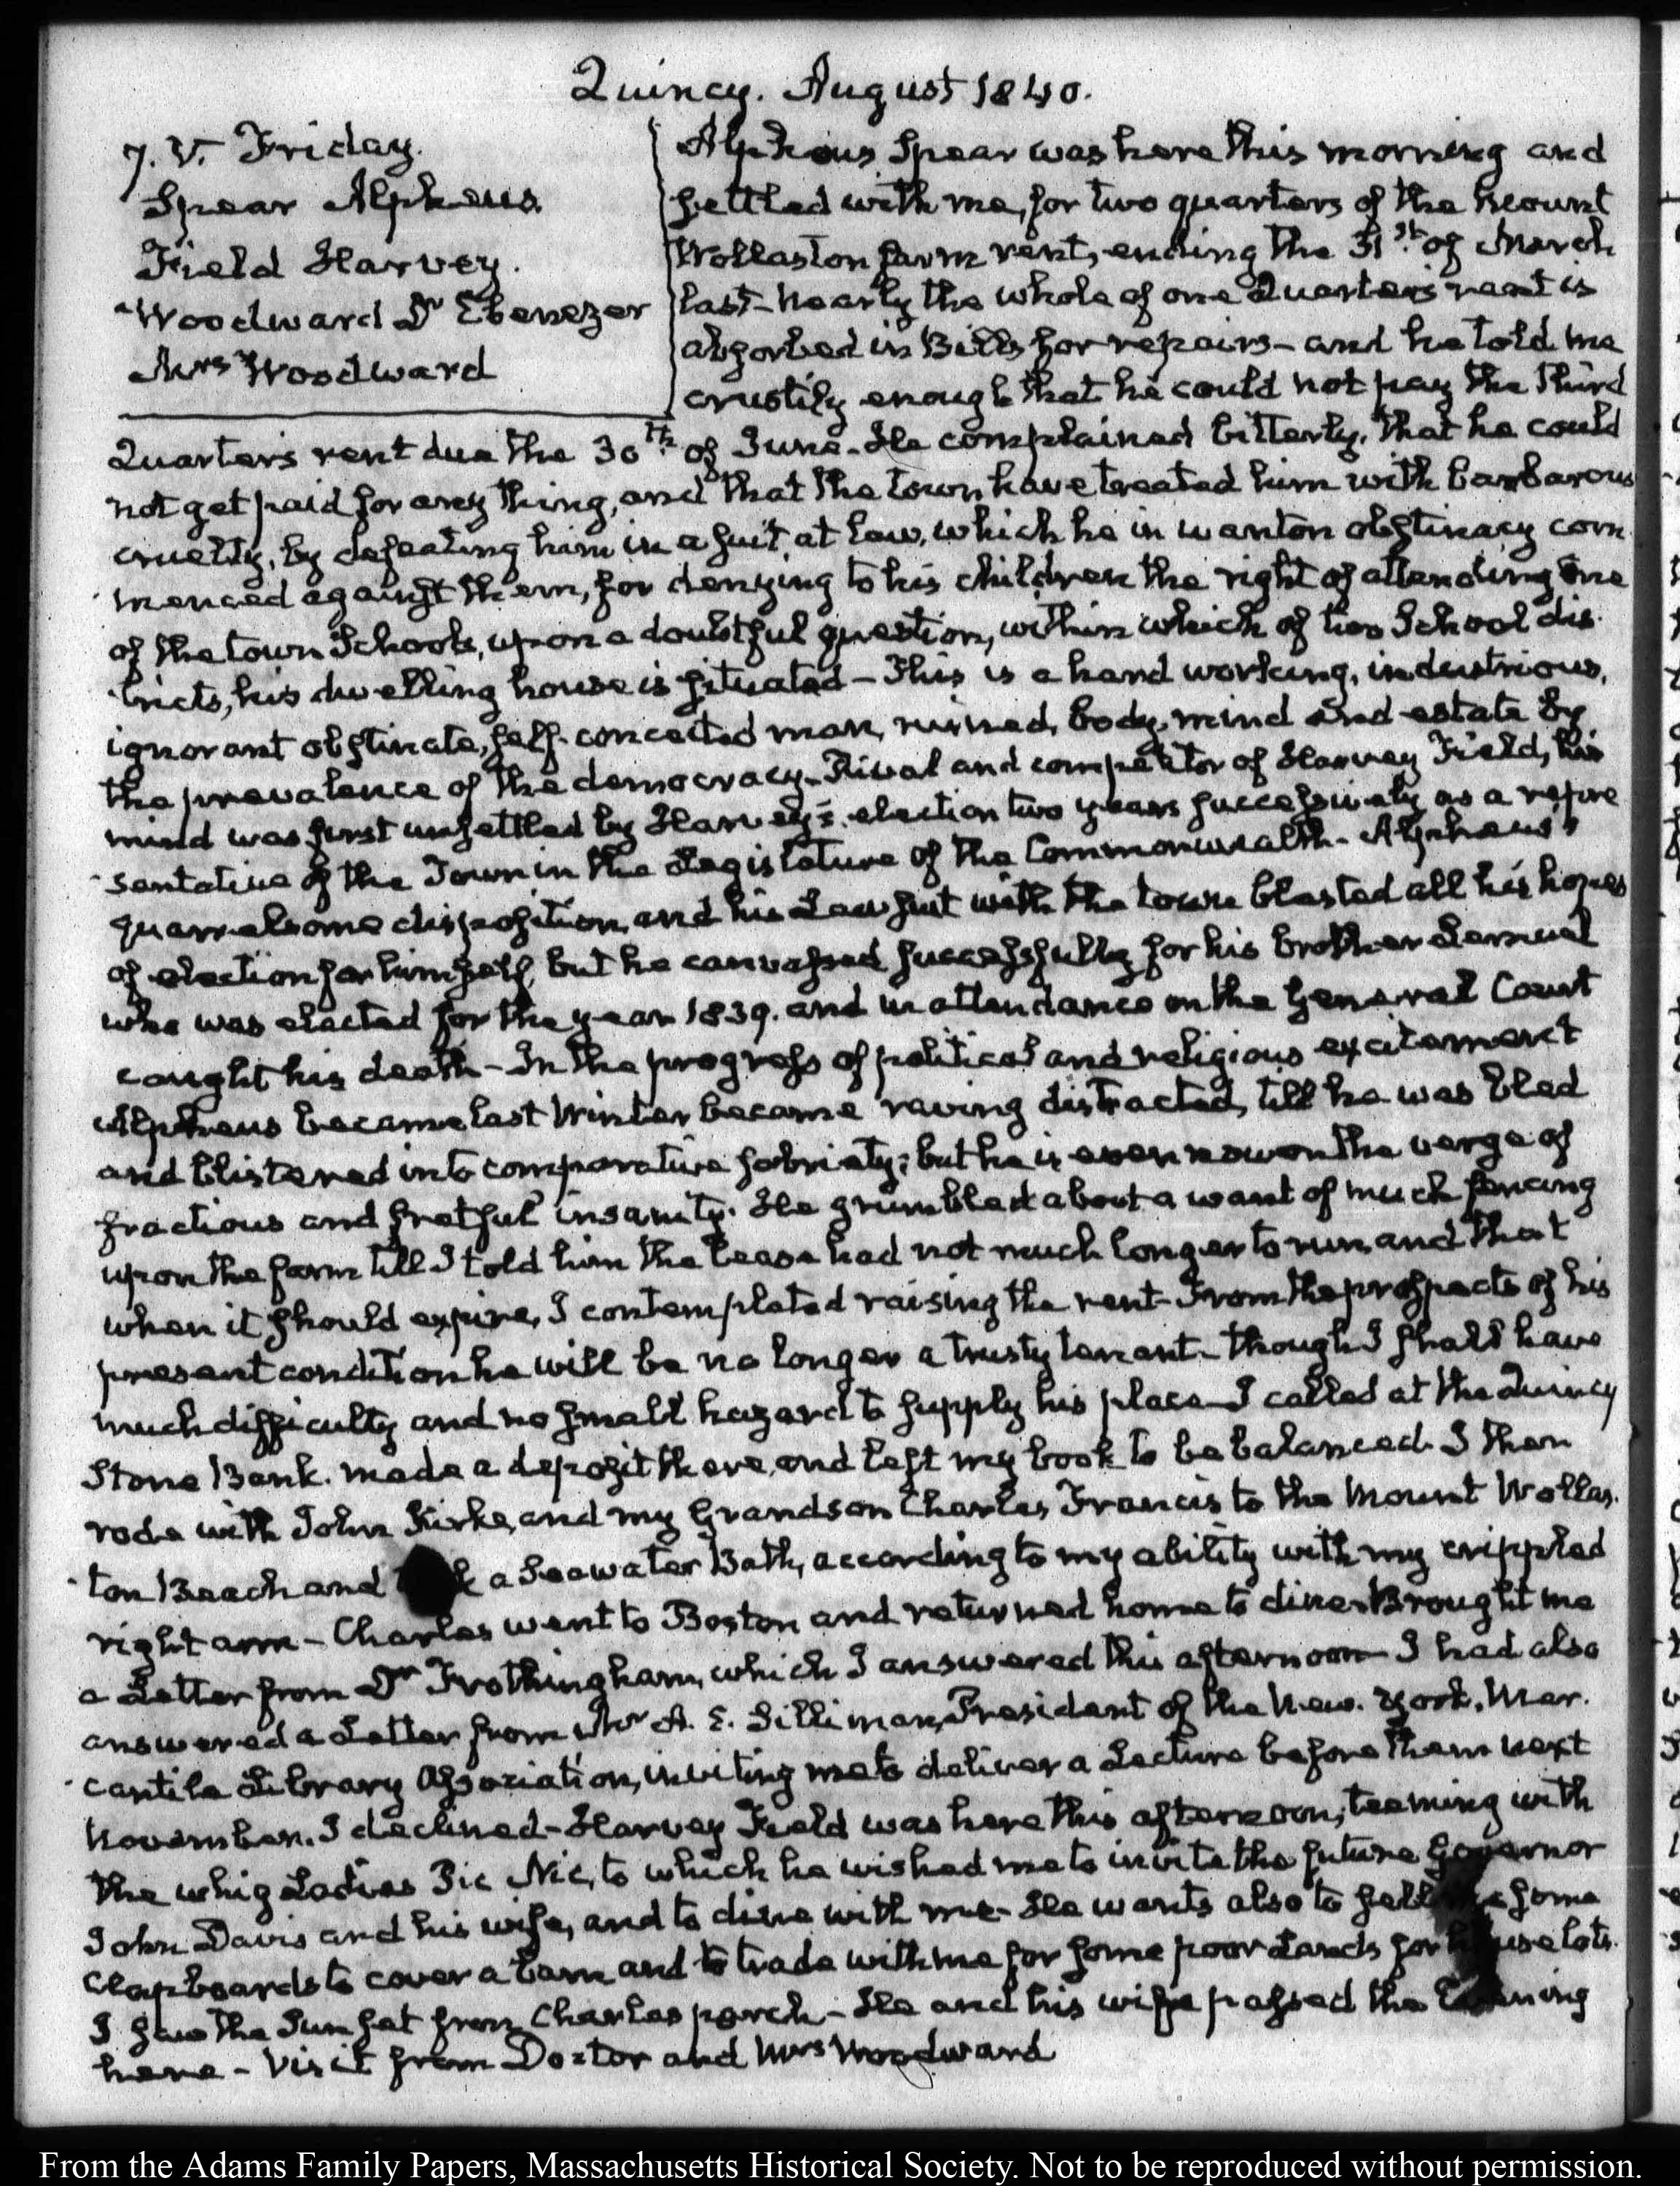 Quincy. August 1840.
7. V. Friday.
Spear Alpheus.
Field Harvey.
Woodward Dr Ebenezer
Mrs Woodward
Alpheus Spear was here this morning and
settled with me, for two quarters of the Mount
Wollaston farm rent, ending the 31st of March
last- Nearly the whole of one Quarter's rent is
absorbed in Bills for repairs- and he told me
crustily enough that he could not pay the third
Quarter's rent due the 30th of June- He complained bitterly, that he could
not get paid for any thing, and that the town have treated him with barbarous
cruelty, by defeating him in a suit, at law, which he in wanton obstinacy com
menced against them, for denying to his children the right of attending one
of the town Schools, upon a doubtful question, within which of two School dis-
tricts, his dwelling house is situated- This is a hard working, industrious,
ignorant obstinate, self-conceited man, ruined, body, mind and estate by
the prevalence of the democracy- Rival and competitor of Harvey Field, his
mind was first unsettled by Harvey's election two years successively as a repre
sentative of the Town in the Legislature of the Commonwealth- Alpheus's
quarrelsome disposition and his Law suit with the town blasted all his hopes
of election for himself, but he canvassed successfully for his brother Lemuel
who was elected for the year 1839. and in attendance on the General Court
caught his death- In the progress of political and religious excitement
Alpheus became last Winter became raving distracted, till he was bled
and blistered into comparative sobriety; but he is even now on the verge of
fractious and fretful insanity. He grumbled about a want of much fencing
upon the farm till I told him the lease had not much longer to run and that
when it should expire, I contemplated raising the rent- From the prospects of his
present condition he will be no longer a trusty tenant- though I shall have
much difficulty and no small hazard to supply his place- I called at the Quincy
Stone Bank. made a deposit there, and left my book to be balanced. I then
rode with John Kirke, and my Grandson Charles Francis to the Mount Wollas-
ton Beach and a Seawater Bath, according to my ability with my crippled
right arm- Charles went to Boston and returned home to dine- Brought me
a Letter from Dr Frothingham, which I answered this afternoon- I had also
answered a Letter from Mr A. E. Silliman, President of the New-York, Mer-
cantile Library Association, inviting me to deliver a Lecture before them next
November. I declined- Harvey Field was here this afternoon, teeming with
the whig Ladies Pic Nic, to which he wished me to invite the future Governor
John Davis and his wife, and to dine with me- He wants also to sell me some
clapboards to cover a barn and to trade with me for some poor Lands for house lots.
I saw the Sun set from Charles porch- He and his wife passed the Evening
here- Visit from Doctor and Mrs Woodward
From the Adams Family Papers, Massachusetts Historical Society. Not to be reproduced without permission.